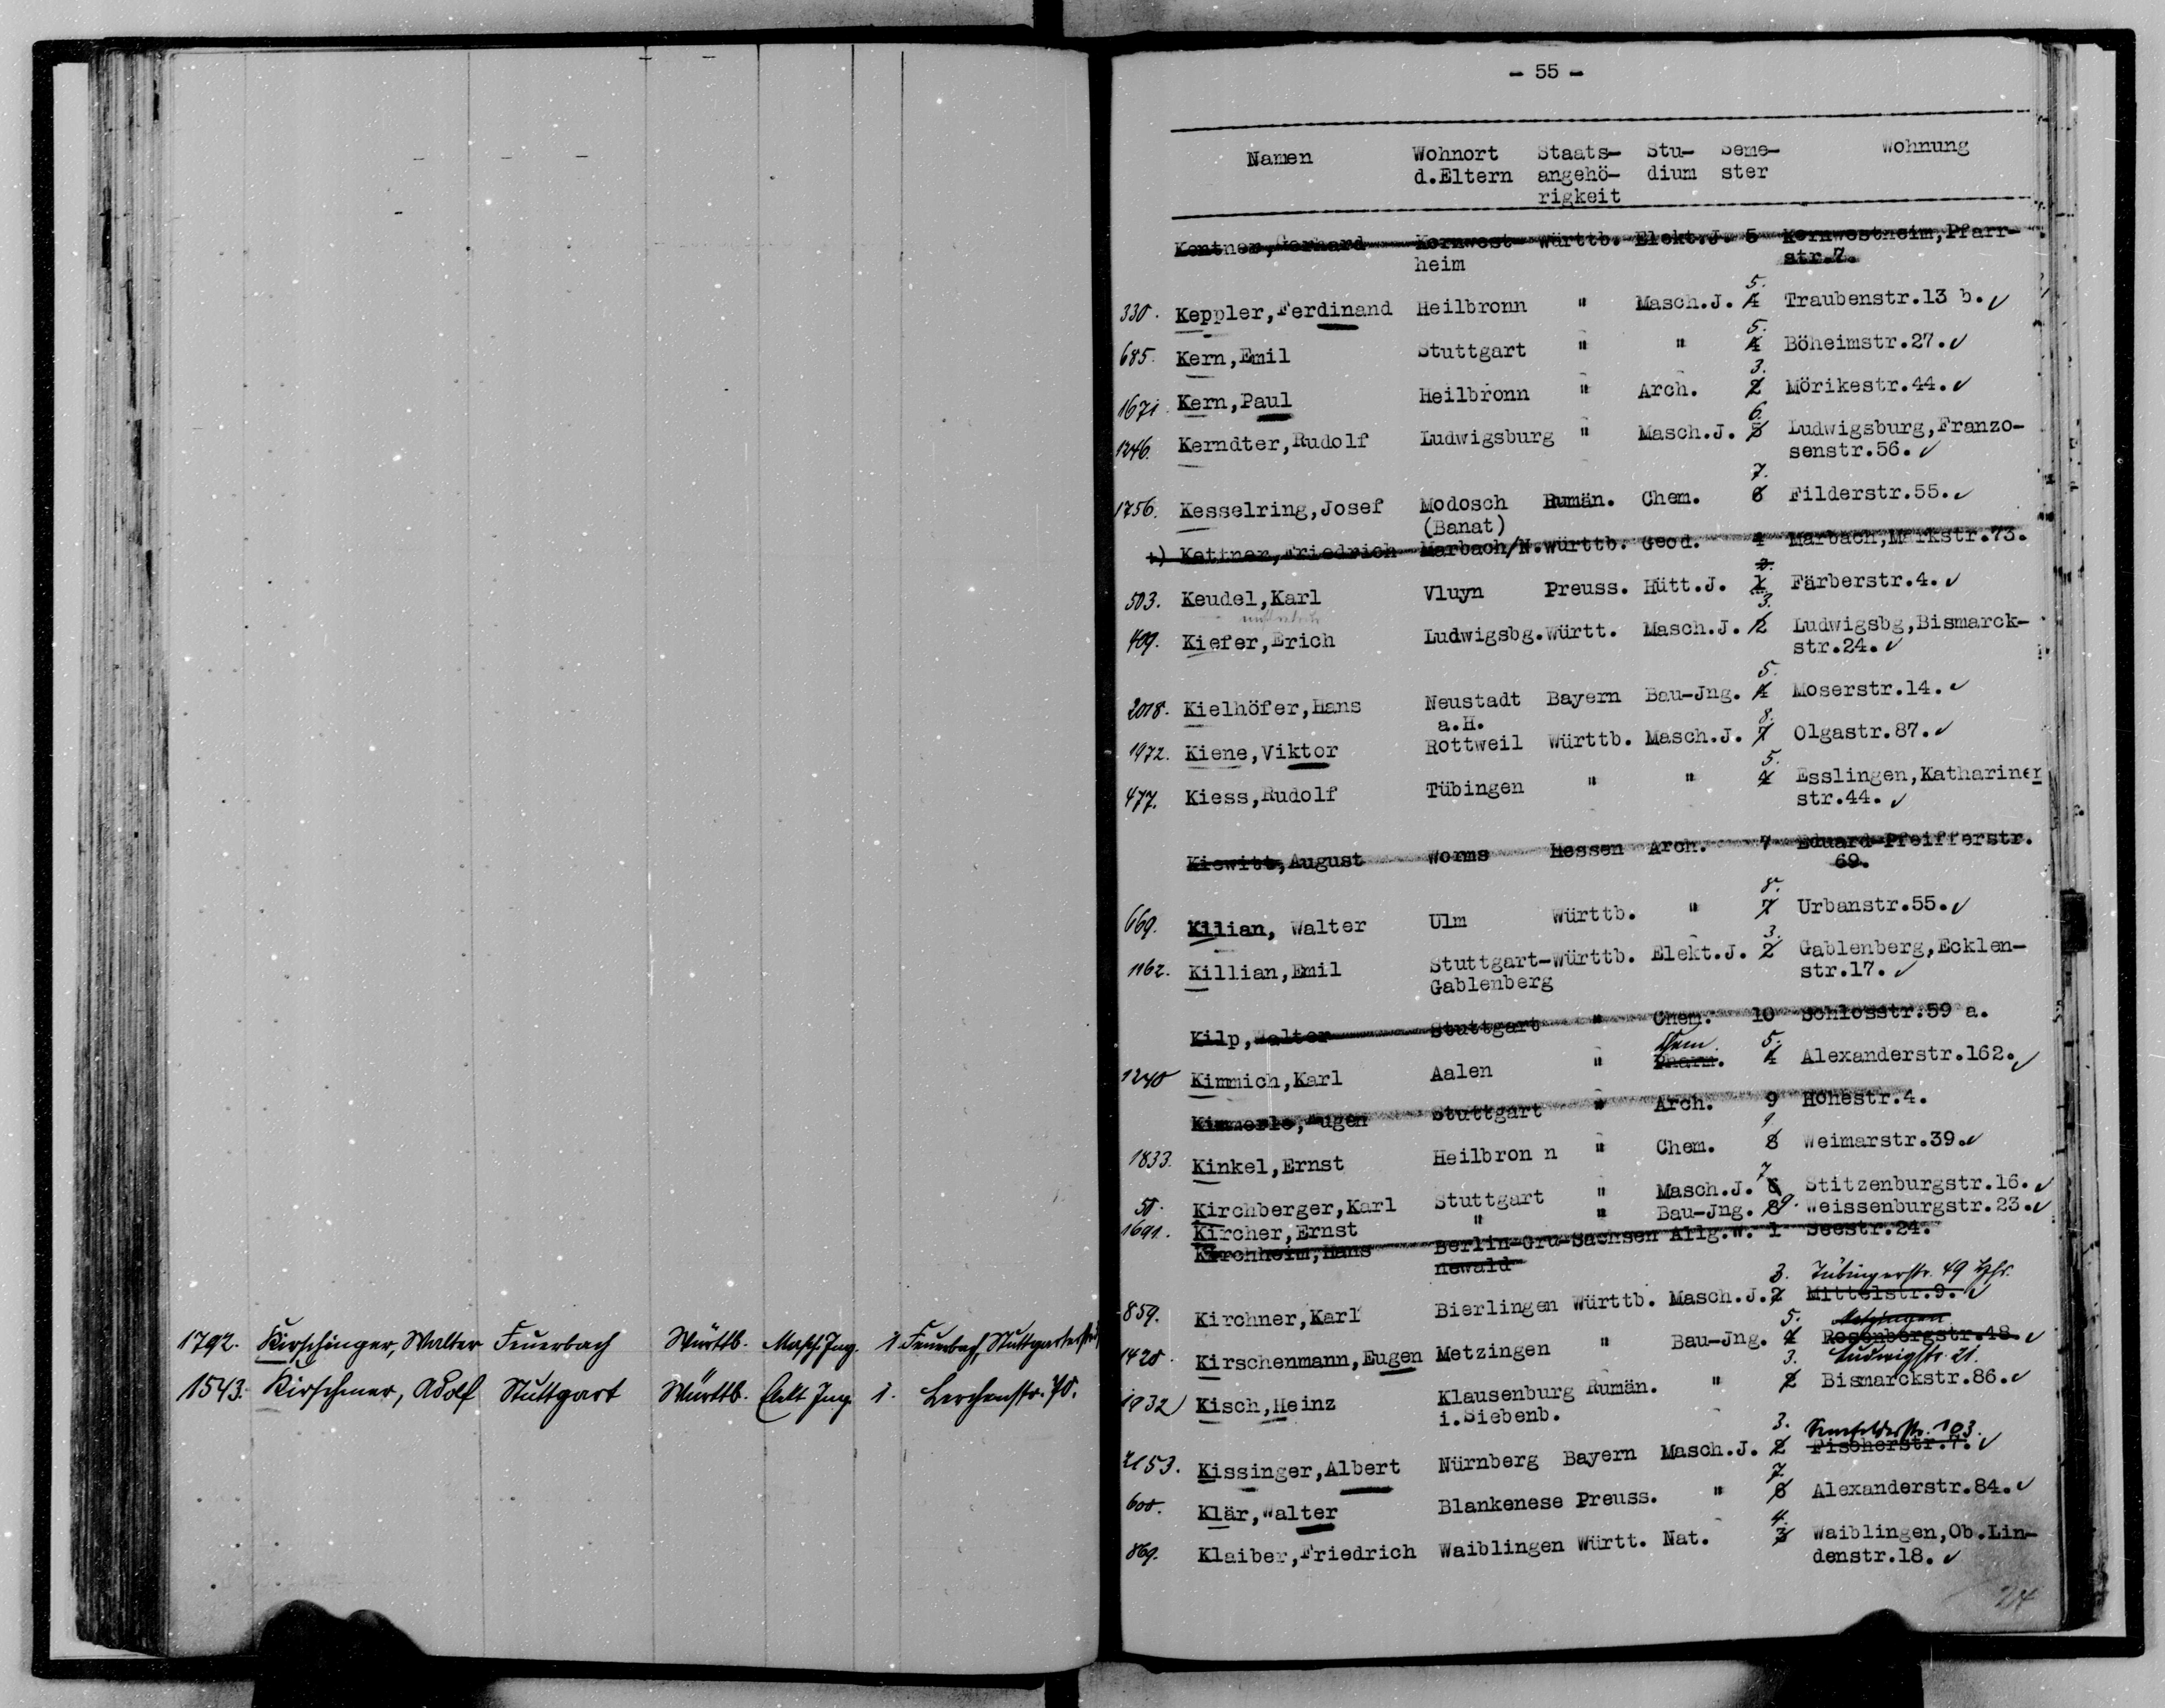 1792. Kirschinger, Walter Feuerbach Württb. Masch. Ing. 1 Feuerbach, Stuttgarterstr.
1543. Kirschmer, Adolf Stuttgart Württb. Elekt Ing. 1. Lerchenstr. 70.
- 55 -
Namen Wohnort Staats- Stu- Seme- Wohnung
d.Eltern angehö- dium ster
rigkeit
Kentner,Gerhard Kornwest- Württb. Elekt.J. 5 Kornwestheim,Pfarr-
heim str.7.
5.
330. Keppler,Ferdinand Heilbronn " Masch.J. 4 Traubenstr.13 b.
5.
685. Kern,Emil Stuttgart " " 4 Böheimstr.27.
3.
1671. Kern,Paul Heilbronn " Arch. 2 Mörikestr.44.
6.
1246. Kerndter,Rudolf Ludwigsburg " Masch.J. 5 Ludwigsburg,Franzo-
senstr.56.
7.
1756. Kesselring,Josef Modosch Rumän. Chem. 6 Filderstr.55.
(Banat)
+) Kettner,Friedrich Marbach/N.Württb. Geod. 4 Marbach,Markstr.73.
2.
503. Keudel,Karl Vluyn Preuss. Hütt.J. 1 Färberstr.4.
3.
409. Kiefer,Erich Ludwigsbg.Württ. Masch.J. 2 Ludwigsbg,Bismarck-
str.24.
5.
2018. Kielhöfer,Hans Neustadt Bayern Bau-Jng. 4 Moserstr.14.
a.H. 8.
1972. Kiene,Viktor Rottweil Württb. Masch.J. 7 Olgastr.87.
5.
477. Kiess,Rudolf Tübingen " " 4 Esslingen,Kathariner
str.44.
Kiewitt,August Worms Hessen Arch. 7 Eduard-Pfeifferstr.
69.
8.
669. Kilian, Walter Ulm Württb. " 7 Urbanstr.55.
3.
1162. Killian,Emil Stuttgart-Württb. Elekt.J. 2 Gablenberg,Ecklen-
Gablenberg str.17.
Kilp,Walter Stuttgart " Chem. 10 Schlosstr.59 a.
Chem. 5.
1240 Kimmich,Karl Aalen " Pharm. 4 Alexanderstr.162.
Kimmerle,Eugen Stuttgart " Arch. 9 Hohestr.4.
9
1833. Kinkel,Ernst Heilbron n " Chem. 8 Weimarstr.39.
7
50. Kirchberger,Karl Stuttgart " Masch.J. 6 Stitzenburgstr.16.
1691. Kircher,Ernst " " Bau-Jng. 8 9. Weissenburgstr.23.
Kirchheim,Hans Berlin-Gru-Sachsen Allg.W. 1 Seestr.24.
newald
3. Tübingerstr. 49
859. Kirchner,Karl Bierlingen Württb. Masch.J.2 Mittelstr.9.
5. Metzingen
1420. Kirschenmann,Eugen Metzingen " Bau-Jng. 4 Rosenbergstr.48
3. Ludwigstr. 21.
1932 Kisch,Heinz Klausenburg Rumän. " 2 Bismarckstr.86.
i.Siebenb.
3. Senefelderstr. 103.
2153. Kissinger,Albert Nürnberg Bayern Masch.J. 2 Fischerstr.7.
7
600. Klär,Walter Blankenese Preuss. " 6 Alexanderstr.84.
4.
869. Klaiber,Friedrich Waiblingen Württ. Nat. 3 Waiblingen,Ob.Lin-
denstr.18.
24